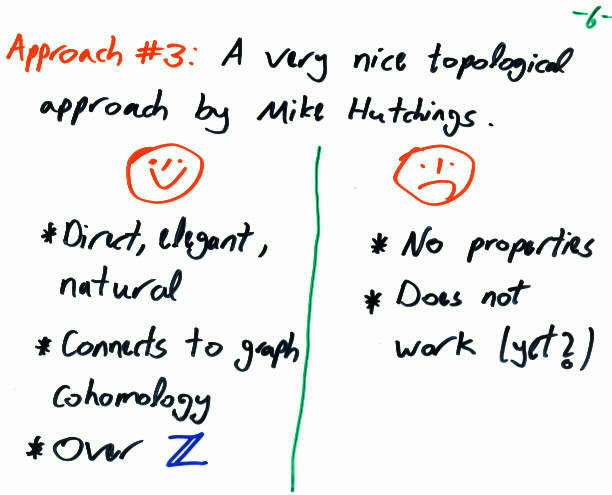 -6-
Approach #3: A very nice topological
approach by Mike Hutchings.
* Direct, elegant,
natural
* Connects to graph
Cohomology
* Over ℤ
* No properties
* Does not
work (yet?)